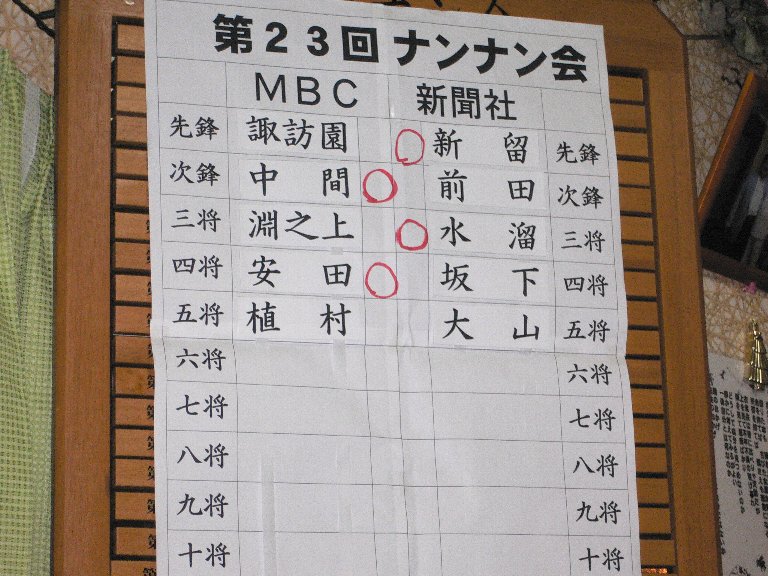 第23回 ナンナン会
MBC 新聞社
先鋒 諏訪園 新留 先鋒
次鋒 中間 前田 次鋒
三将 淵之上 水溜 三将
四将 安田 坂下 四将
五将 植村 大山 五将
六将 六将
七将 七将
八将 八将
九将 九将
十将 十将